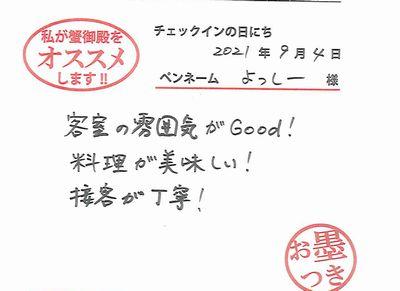 私が蟹御殿を
オススメ
します!!
チェックインの日にち
2021年9月4日
ペンネーム よっしー 様
客室の雰囲気がGood!
料理が美味しい!
接客が丁寧!
お墨
つき